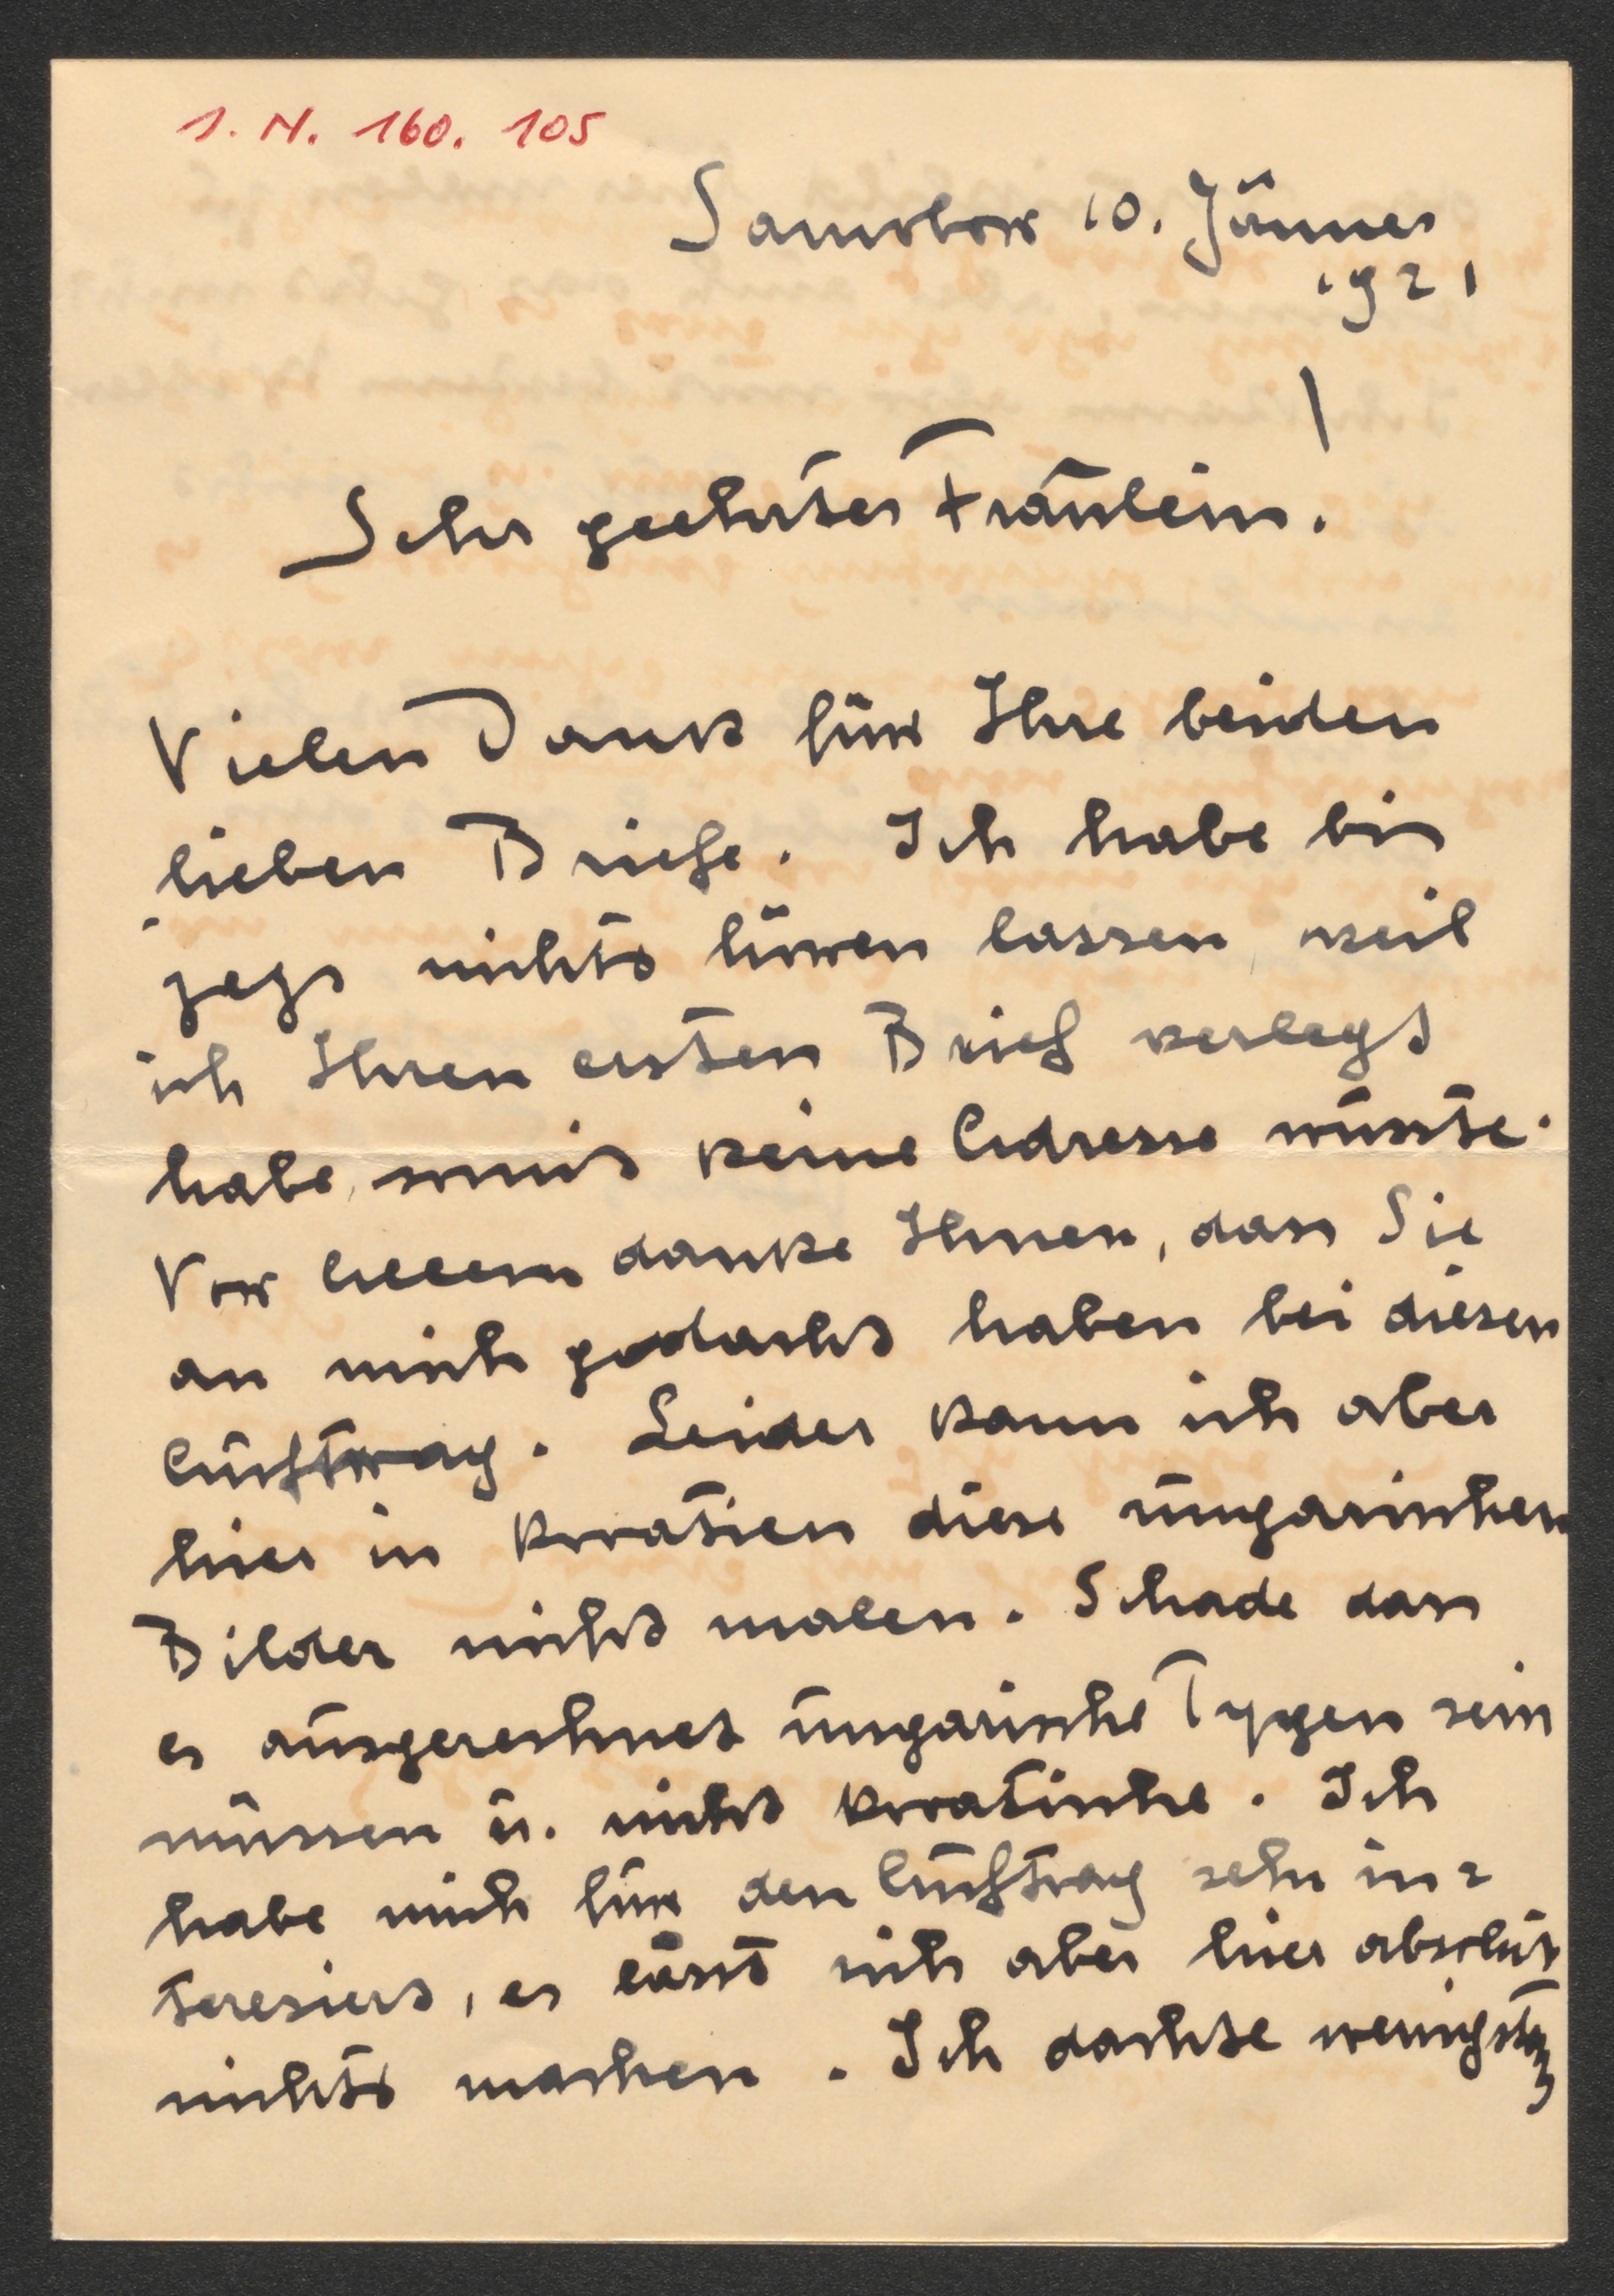 I. N. 160. 105
Samobor 10. Jänner
1921
Sehr geehrtes Fräulein!
Vielen Dank für Ihre beiden
lieben Briefe. Ich habe bis
jezt nichts hören lassen, weil
ich Ihren ersten Brief verlegt
habe, somit keine Adresse wusste.
Vor Allem danke Ihnen, dass Sie
an mich gedacht haben bei diesen
Auftrag. Leider kann ich aber
hier in Kroatien diese ungarischen
Bilder nicht malen. Schade dass
es ausgerechnet ungarische Typen sein
müssen u. nicht kroatische. Ich
habe mich für den Auftrag sehr in=
teresiert, es lässt sich aber hier absolut
nichts machen. Ich dachte wenigstens